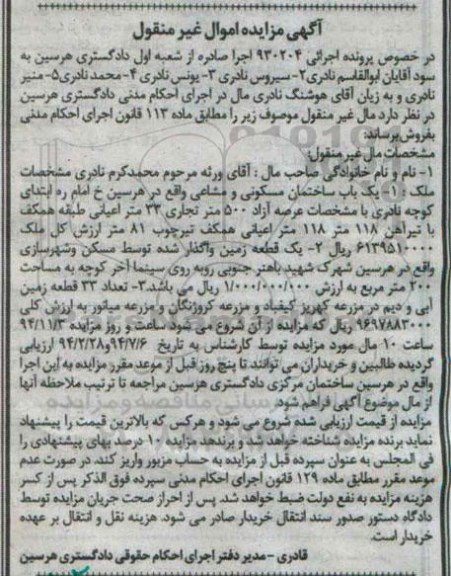 آگهی مزایده اموال غیر منقول
در خصوص پرونده اجرائی ۹۳۰۲۰۴ اجرا صادره از شعبه اول دادگستری هرسین به
سود آقایان ابوالقاسم نادری۲- سیروس نادری ۳- یونس نادری ۴- محمد نادری۵- منیر
نادری و به زیان آقای هوشنگ نادری مال در اجرای احکام مدنی دادگستری هرسین
در نظر دارد مال غیر منقول موصوف زیر را مطابق ماده ۱۱۳ قانون اجرای احکام مدنی
بفروش برساند:
مشخصات مال غیر منقول:
۱- نام و نام خانوادگی صاحب مال : آقای ورثه مرحوم محمدکرم نادری مشخصات
ملک : ۱- یک باب ساختمان مسکونی و مشاعی واقع در هرسین خ امام ره ابتدای
کوچه نادری با مشخصات عرصه آزاد ۵۰۰ متر تجاری ۳۳ متر اعیانی طبقه همکف
با تیرآهن ۱۱۸ متر ۱۱۸ متر اعیانی همکف تیرچوب ۸۱ متر ارزش کل ملک
۶۱۳۹۵۱۰۰۰۰ ریال ۲- یک قطعه زمین واگذار شده توسط مسکن وشهرسازی
واقع در هرسین شهرک شهید باهنر جنوبی روبه روی سینما آخر کوچه به مساحت
۲۰۰ متر مربع به ارزش ۱/۰۰۰/۰۰۰/۰۰۰ ریال می باشد.۳- تعداد ۳۳ قطعه زمین
آبی و دیم در مزرعه کهریز کیقباد و مزرعه کروژنگان و مزرعه میانور به ارزش کلی
۹۶۹۷۸۸۳۰۰۰ ریال که مزایده از آن شروع می شود ساعت و روز مزایده ۹۴/۱۱/۳
ساعت ۱۰ مال مورد مزایده توسط کارشناس به تاریخ ۹۴/۷/۶و۹۴/۲/۲۸ ارزیابی
گردیده طالبین و خریداران می توانند تا پنج روز قبل از موعد مقرر مزایده به این اجرا
واقع در هرسین ساختمان مرکزی دادگستری هرسین مراجعه تا ترتیب ملاحظه آنها
از مال موضوع آگهی فراهم شود
مزایده از قیمت ارزیابی شده شروع می شود و هرکس که بالاترین قیمت را پیشنهاد
نماید برنده مزایده شناخته خواهد شد و برنده مزایده ۱۰ درصد بهای پیشنهادی را
فی المجلس به عنوان سپرده قبل از مزایده به حساب مزبور واریز کند. در صورت عدم
موعد مقرر مطابق ماده ۱۲۹ قانون اجرای احکام مدنی سپرده فوق الذکر پس از کسر
هزینه مزایده به نفع دولت ضبط خواهد شد. پس از احراز صحت جریان مزایده توسط
دادگاه دستور صدور سند انتقال خریدار صادر می شود. هزینه نقل و انتقال بر عهده
خریدار است.
قادری - مدیر دفتر اجرای احکام حقوقی دادگستری هرسین